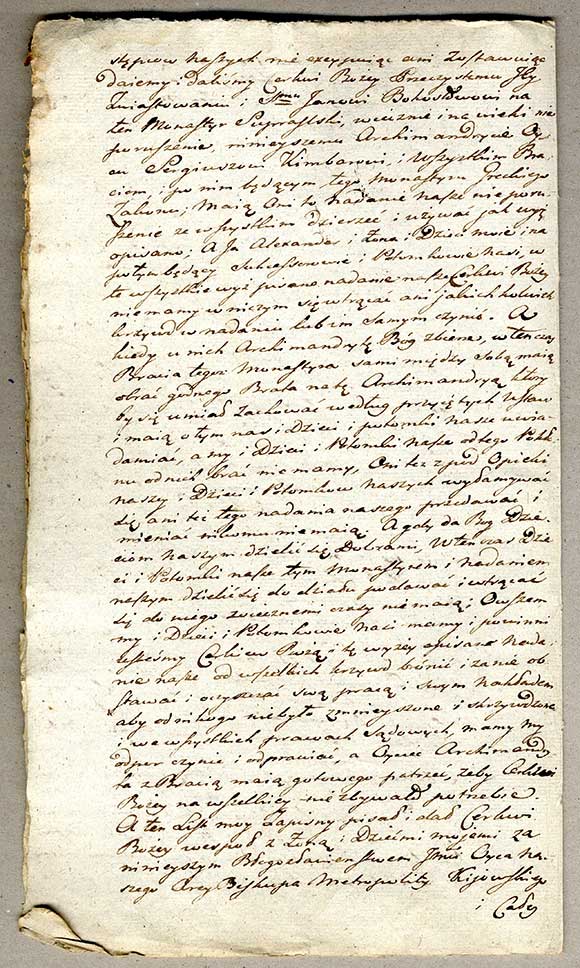 stępcow naszych nie excypuiąc ani zostawuiąc
daiemy i daliśmy Cerkwi Bożey Przeczystemu Zwiastowaniu i Stmu Janowi Bohosłowowi na
ten Monastyr Suprasłski, wiecznie i na wieki nie
poruszenie, ninieyszemu Archimandrycie Oycu Sergiuszowi Kimbarowi, i wszystkim Braciom, i po nim będącym tego Monastyra Greckiego
Zakonu; maią Oni to nadanie nasze nieporuszenie ze wszystkim dzierżeć i używać jak wyż
opisano; A Ja Alexander, i żona i Dzieci moie i na
potym będący Sukcessorowie i Potomkowie nasi, w
te wszystkie wyż pisane nadanie nasze Cerkwi Bożey
nie mamy w niczym się wtrącać ani jakichkolwiek
krzywd w nadaniu lub im samym czynić. A
kiedy u nich Archimandrytę Bóg zbierze, w ten czas
Bracia tegoż Monastyra sami między sobą maią
obrać godnego Brata na tę Archimandryą któryby się umiał zachować według przyiętych Ustaw
i maią o tym nas i Dzieci i potomki nasze uwiadamiać, a my i Dzieci i Potomki nasze od tego Pokłonu od nich brać nie mamy, Oni też z pod Opieki
naszey i Dzieci i Potomkow naszych wyłamywać
się ani też tego nadania naszego przedawać i
mieniać nikomu nie maią. A gdy da Bog Dzieciom naszym dzielić się Dobrami, w ten czas Dzieci i Potomki nasze tym Monastyrem i nadaniem
naszym dzielić się do działu podawać i wtrącać
się do niego wiecznemi czasy nie maią; Owszem
my i Dzieci i Potomkowie nasi mamy i powinni
iesteśmy Cerkiew Bożą i tę wyżey opisane nadanie nasze od wszelkich krzywd bronić i za nie obstawać i oczyszczać swą pracą i swym nakładem
aby od nikogo nie było zmnieyszone i skrzywdzone
i we wszystkich prawach sądowych, mamy my
odpor czynić i odprawiać, a Oyciec Archimandryta z Bracią maią gotowego patrzeć, żeby Cerkwi
Bożey na wszelkiey nie zbywało potrzebie.
A ten List moy Zapisny pisał i dał Cerkwi
Bożey wespoł z Żoną i Dziećmi mojemi za
ninieyszym Błogosławieństwem Jmci Oyca naszego Arcy Biskupa Metropolity Kijowskiego
i Całey